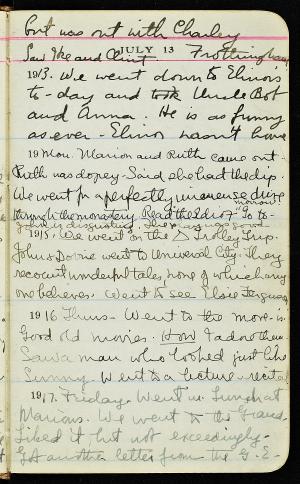 but was out with Charley
Saw Ike and Clint. Frottingham
JULY 13
1913. We went down to Elinors
to-day and took Uncle Bob
and Anna. He is as funny
as ever - Elinor hasn't have
19 Mon. Marion and Ruth came out.
Ruth was dopey - Said she had the dip.
We went for a perfectly immense drive
through the monastery. Read the Idiot To to-
morrow
John is disgusting.
1915. We went on the Δ Trolley Trip.
John & Dorrie went to Universal City. They
recount wonderful tales, none of which any
one believes. Went to see Elsie Ferguson
1916 Thurs - Went to the movies
Good old movies. How I adore them.
Saw a man who looked just like
Sunny. Went to a lecture-recital
1917. Friday. Went in. Lunch at
Marions. We went to the Grand.
Liked it but not exceedingly -
Got another letter from the G. E -